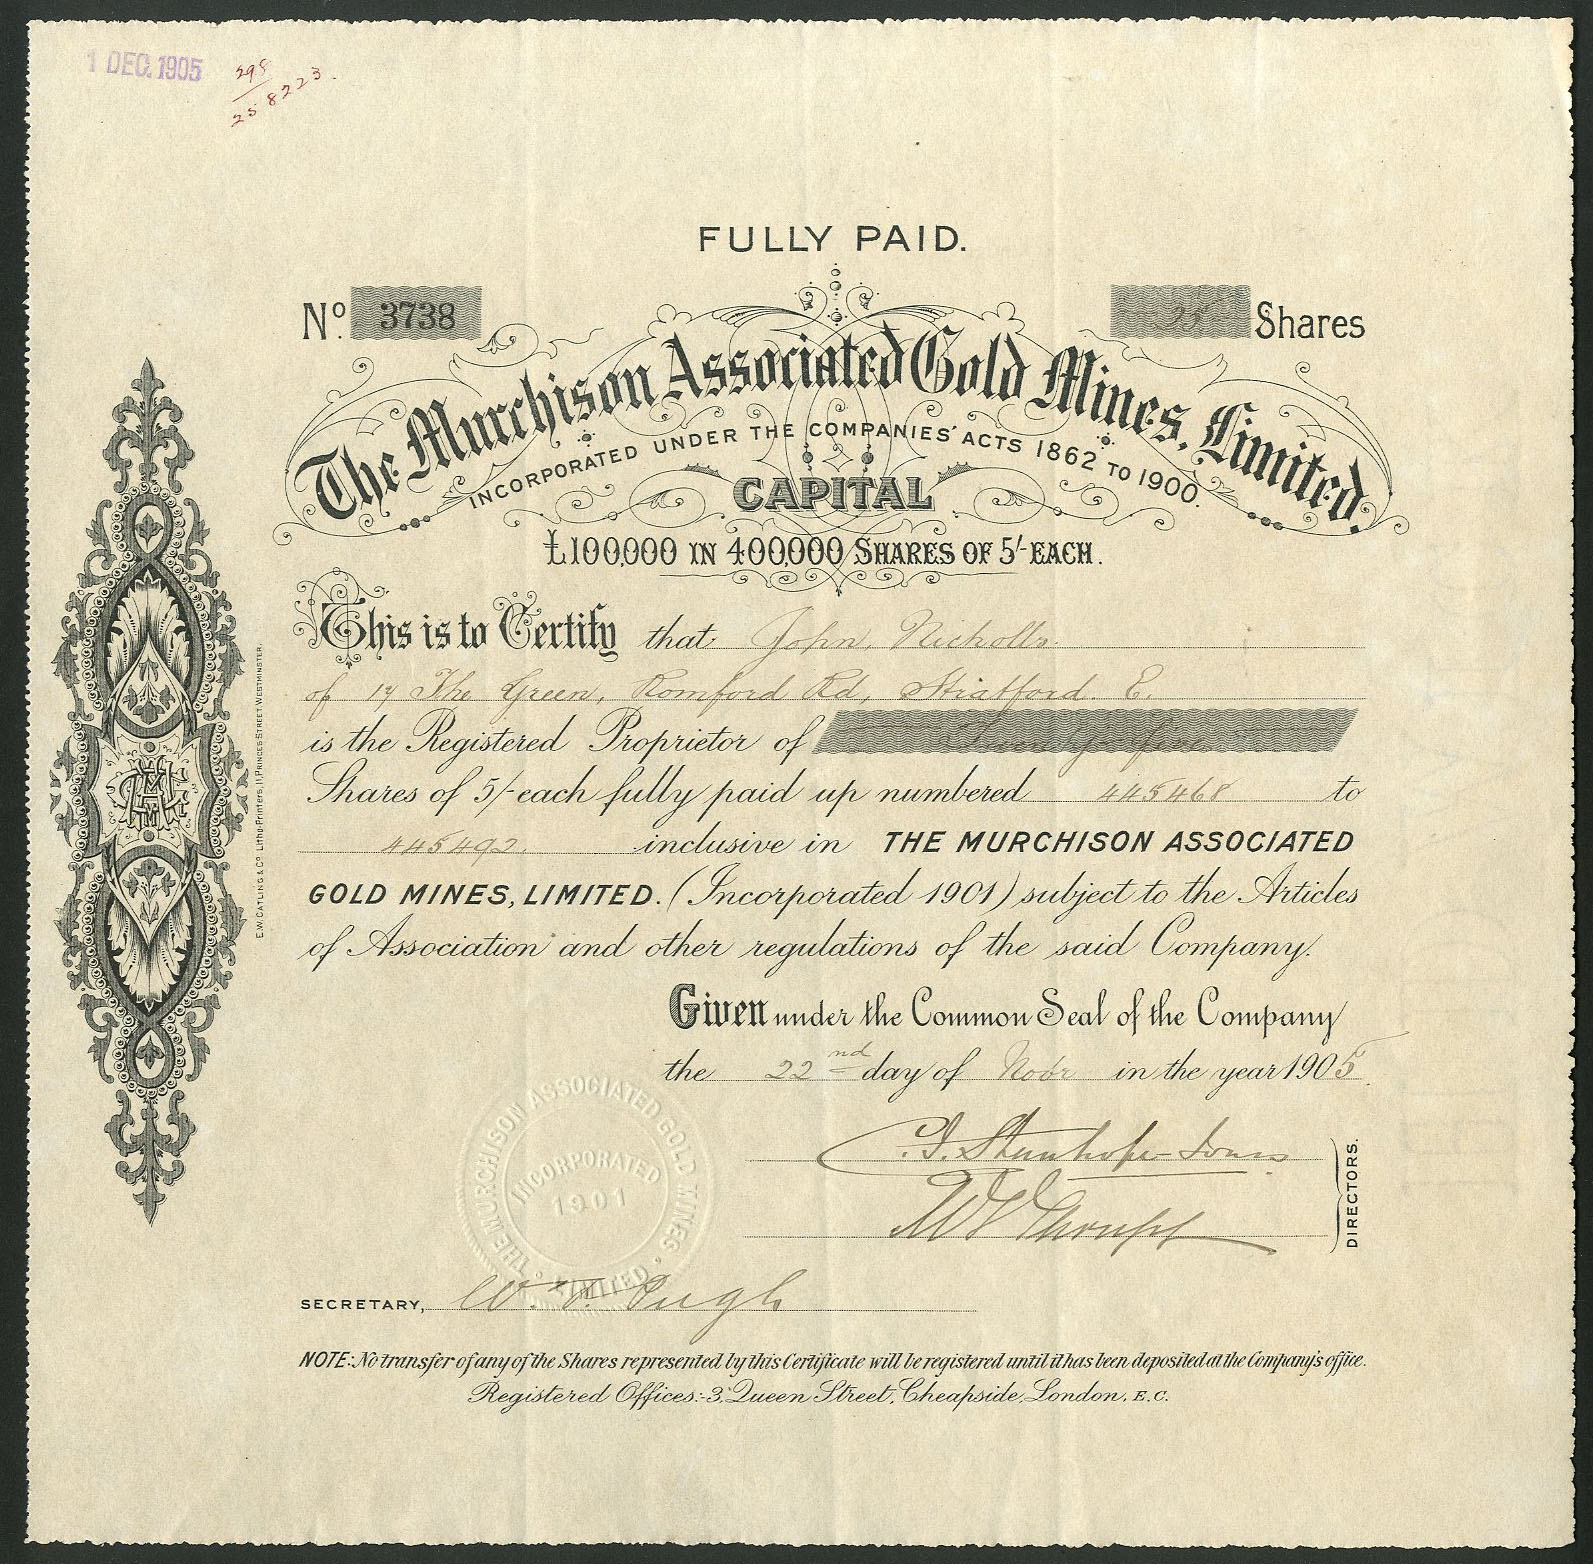 1 DEC. 1905
298
258223.
FULLY PAID.
No. 3738
25 Shares
The Murchison Associated Gold Mines, Limited.
INCORPORATED UNDER THE COMPANIES' ACTS 1862 TO 1900.
CAPITAL
£100,000 IN 400,000 SHARES OF 5/- EACH.
This is to Certify that John Nicholls
of 17 The Green, Romford Rd, Stratford. E.
is the Registered Proprietor of Twenty five
Shares of 5/- each fully paid up numbered 445468 to
445492 inclusive in THE MURCHISON ASSOCIATED
GOLD MINES, LIMITED. (Incorporated 1901) subject to the Articles
of Association and other regulations of the said Company.
Given under the Common Seal of the Company
the 22nd day of Novr in the year 1905
DIRECTORS.
THE MURCHISON ASSOCIATED GOLD MINES LIMITED
INCORPORATED
1901
SECRETARY, W. Pugh
NOTE:-No transfer of any of the Shares represented by this Certificate will be registered until it has been deposited at the Company's office.
Registered Offices:-3, Queen Street, Cheapside, London, E.C.
E.W. CATLING & CO. LITHO-PRINTERS, 11, PRINCES STREET, WESTMINSTER.